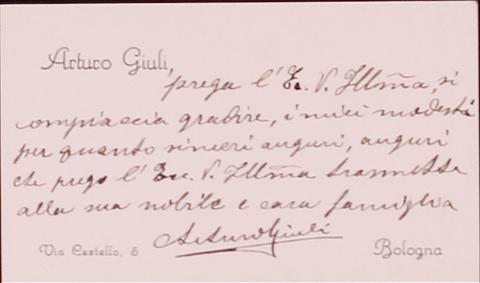 Arturo Giuli,
prega l'Ec. V. Illma, si
compiaccia gradire, i miei modesti
per quanto sinceri auguri, auguri
che prego l'Ecc. V. Illma trasmetta
alla sua nobile e cara famiglia
Arturo Giuli
Via Castello, 6 Bologna